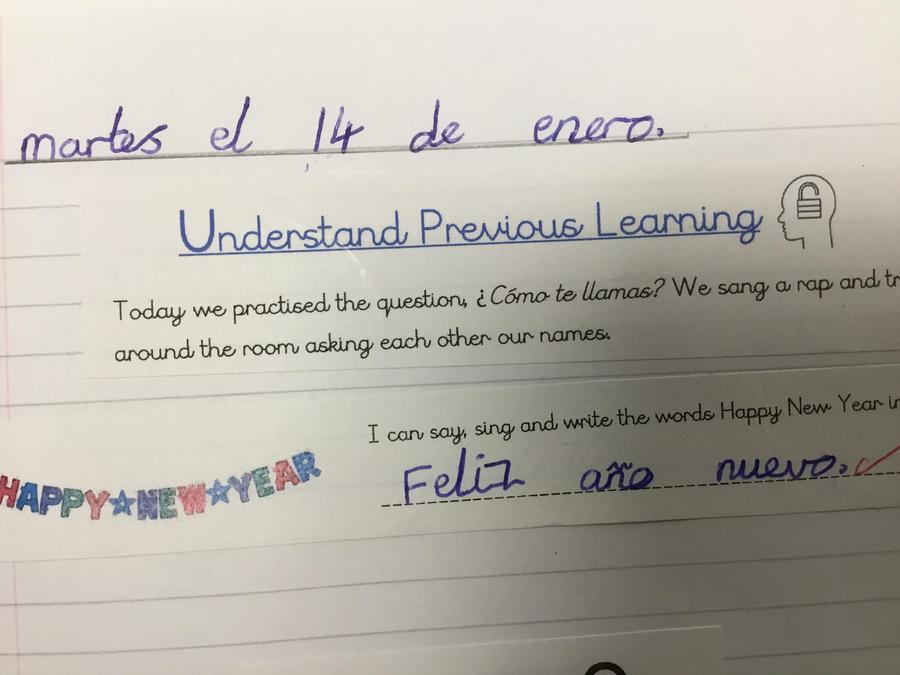 martes el 14 de enero.
Understand Previous Learning
Today we practised the question, ¿Cómo te llamas? We sang a rap and
around the room asking each other our names.
I can say, sing and write the words Happy New Year
HAPPY★NEW★YEAR
Feliz año nuevo.